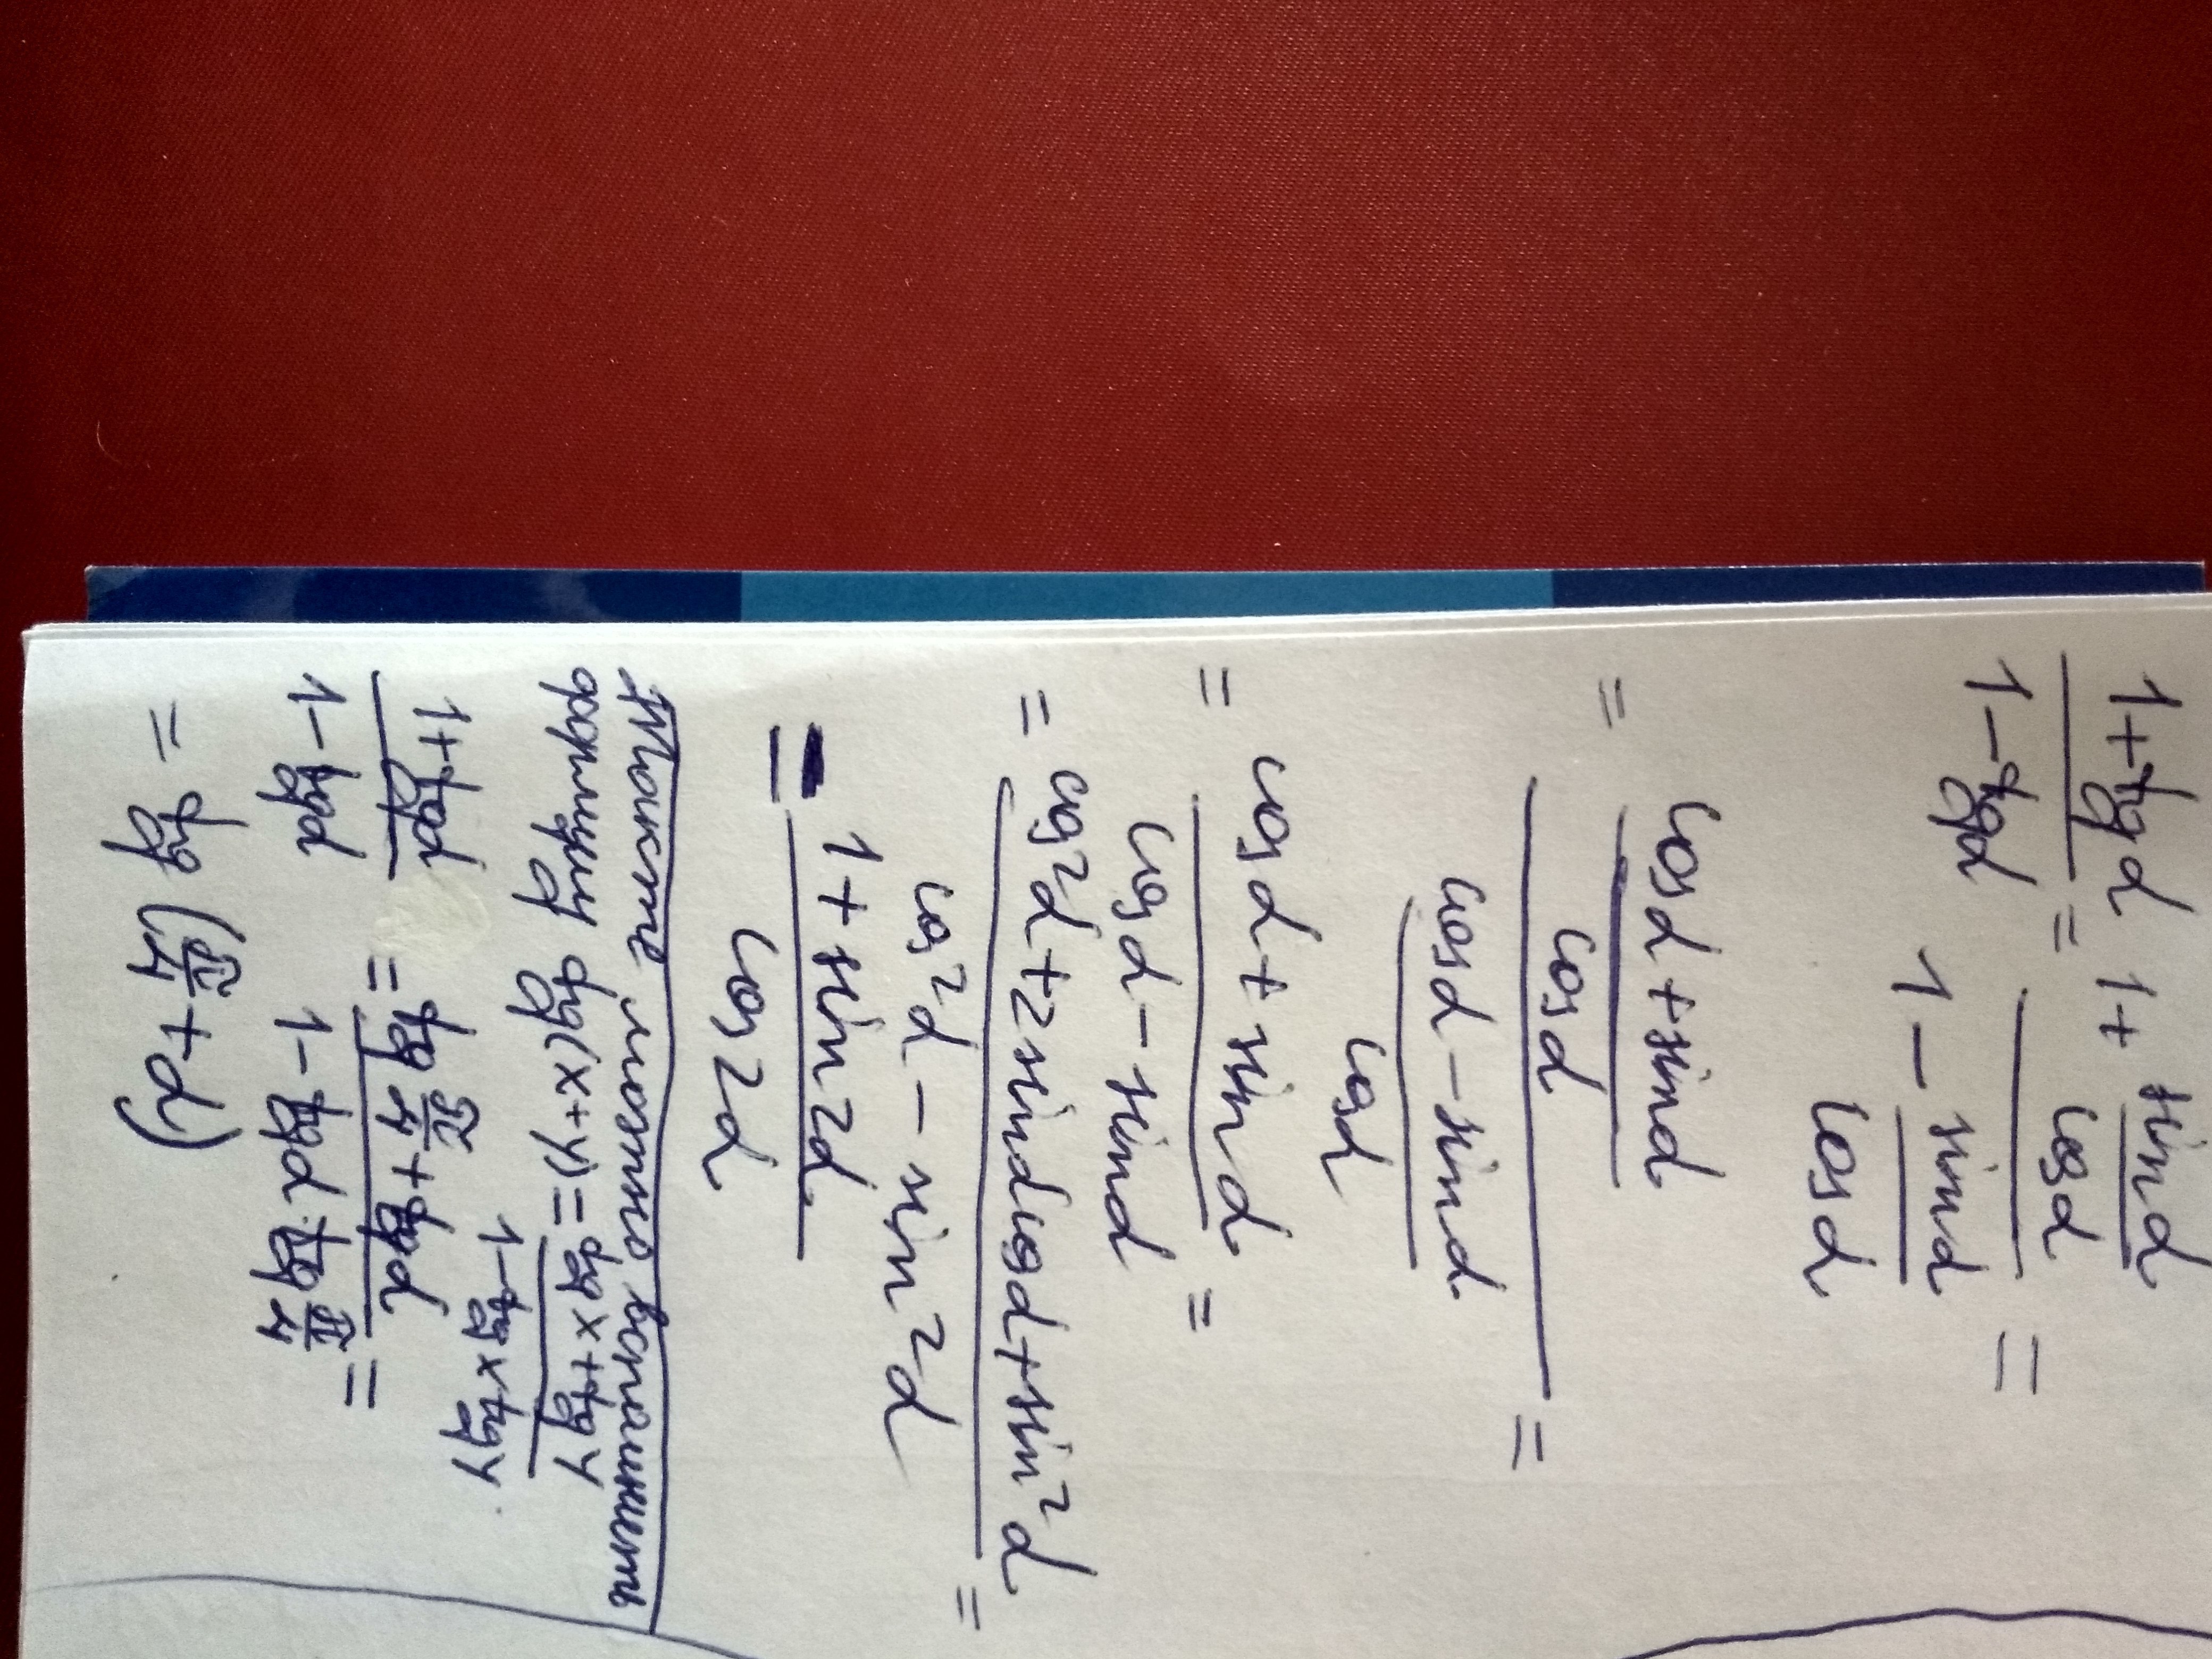 1+tgα / 1-tgα = 1+ sinα/cosα / 1 - sinα/cosα =
= cosα+sinα / cosα / cosα-sinα / cosα =
= cosα+sinα / cosα-sinα =
= cos²α+2sinαcosα+sin²α / cos²α-sin²α =
= 1+sin2α / cos2α
Также можно вспомнить
формулу tg(x+y) = tgx+tgy / 1-tgxtgy
1+tgα / 1-tgα = tg π/4 + tgα / 1-tgα·tg π/4 =
= tg (π/4 + α)